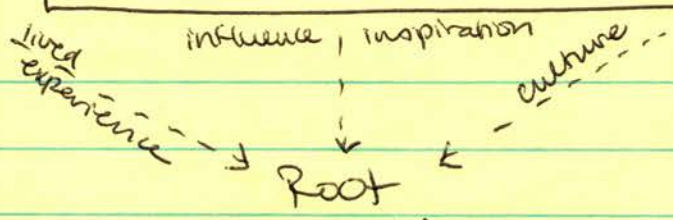 lived
experience
influence, inspiration
culture
Root